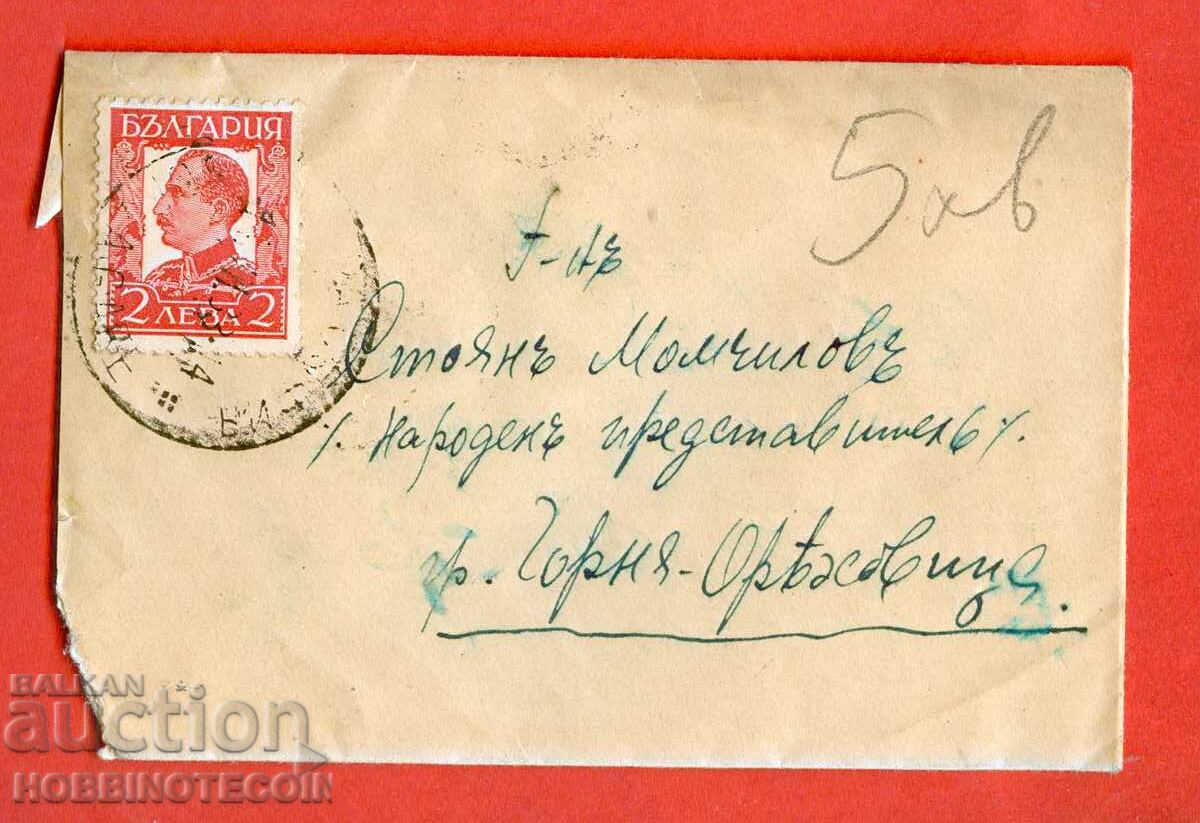 БЪЛГАРИЯ
2 ЛЕВА 2
5 лв
Г-нъ
Стоянъ Момчиловъ
/. Народенъ представитель /.
гр. Горня-Орѣховица.
BALKAN
auction
HOBBINOTECOIN